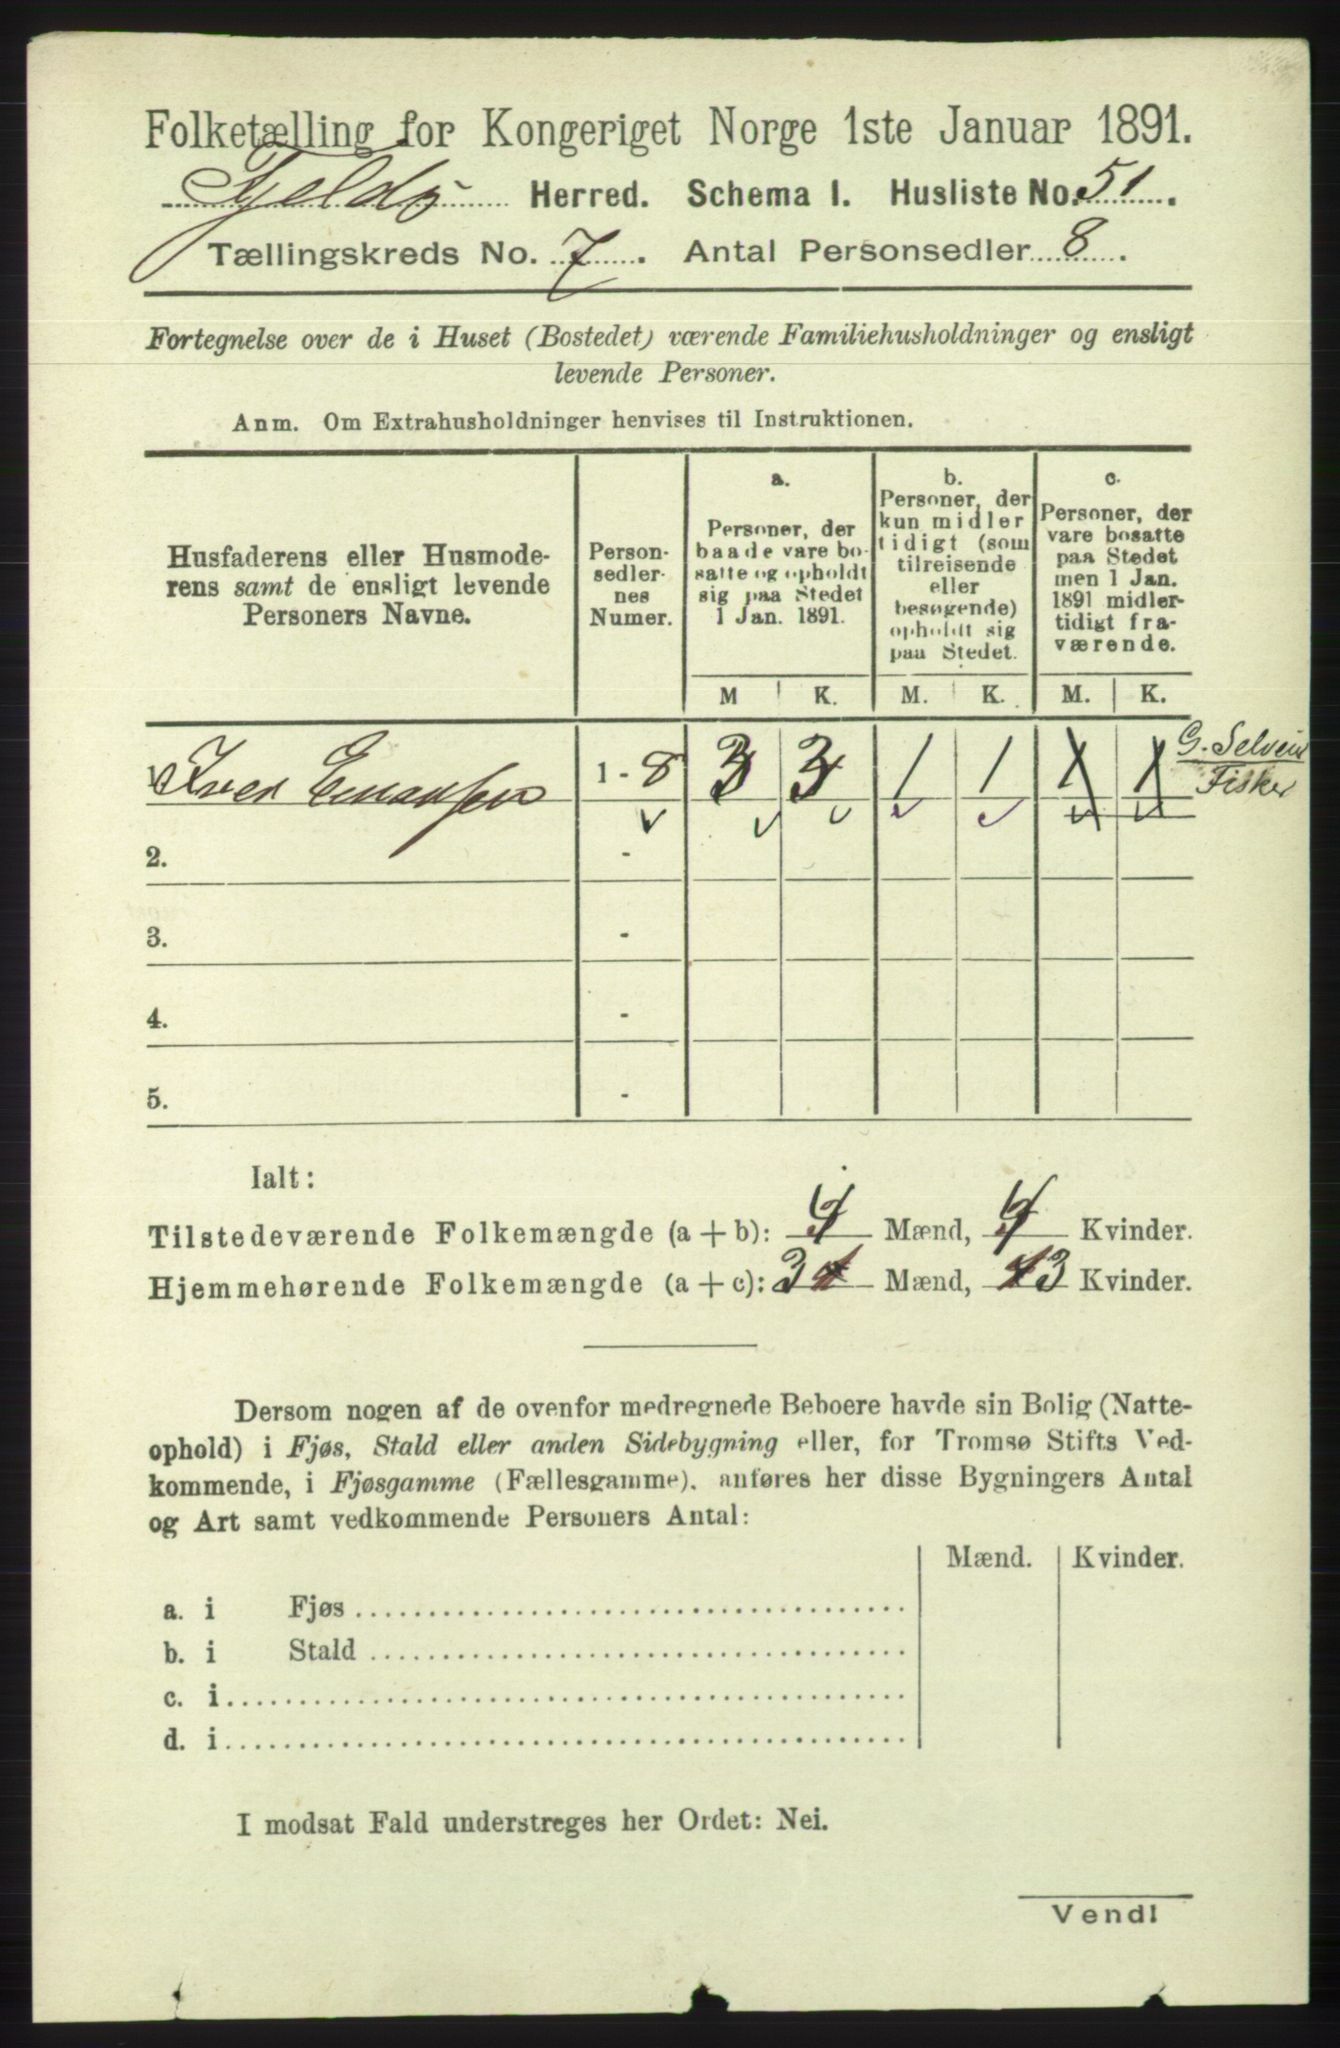 Folketælling for Kongeriget Norge 1ste Januar 1891.
Fjeldø Herred. Schema I. Husliste No. 51.
Tællingskreds No. 7. Antal Personsedler 8.
Fortegnelse over de i Huset (Bostedet) værende Familiehusholdninger og ensligt
levende Personer.
Anm. Om Extrahusholdninger henvises til Instruktionen.
Husfaderens eller Husmode-
rens samt de ensligt levende
Personers Navne.
Person-
sedler-
nes
Numer.
a.
Personer, der
baade vare bo-
satte og opholdt
sig paa Stedet
1 Jan. 1891.
b.
Personer, der
kun midler
tidigt (som
tilreisende
eller
besøgende)
opholdt sig
paa Stedet.
c.
Personer, der
vare bosatte
paa Stedet
men 1 Jan.
1891 midler-
tidigt fra-
værende.
M K. M. K. M. K.
Iver 1 - 8 3 3 1 1 1 1
G. Selveier
Fisker
2. -
3. -
4. -
5. -
Ialt:
Tilstedeværende Folkemængde (a + b): 4 Mænd, 4 Kvinder.
Hjemmehørende Folkemængde (a + c): 3 4 Mænd, 4 3 Kvinder.
Dersom nogen af de ovenfor medregnede Beboere havde sin Bolig (Natte-
ophold) i Fjøs, Stald eller anden Sidebygning eller, for Tromsø Stifts Ved-
kommende, i Fjøsgamme (Fællesgamme), anføres her disse Bygningers Antal
og Art samt vedkommende Personers Antal:
Mænd. Kvinder.
a. i Fjøs
b. i Stald
c. i
d. i
I modsat Fald understreges her Ordet: Nei.
Vend!